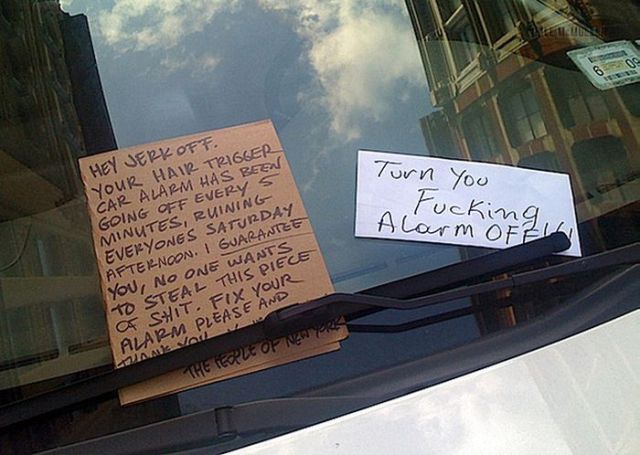 HEY JERK OFF.
YOUR HAIR TRIGGER
CAR ALARM HAS BEEN
GOING OFF EVERY 5
MINUTES, RUINING
EVERYONES SATURDAY
AFTERNOON. I GUARANTEE
YOU, NO ONE WANTS
TO STEAL THIS PIECE
OF SHIT. FIX YOUR
ALARM PLEASE AND
THANK YOU.
THE PEOPLE OF NEW YORK
Turn You
Fucking
Alarm OFF!!
6 09